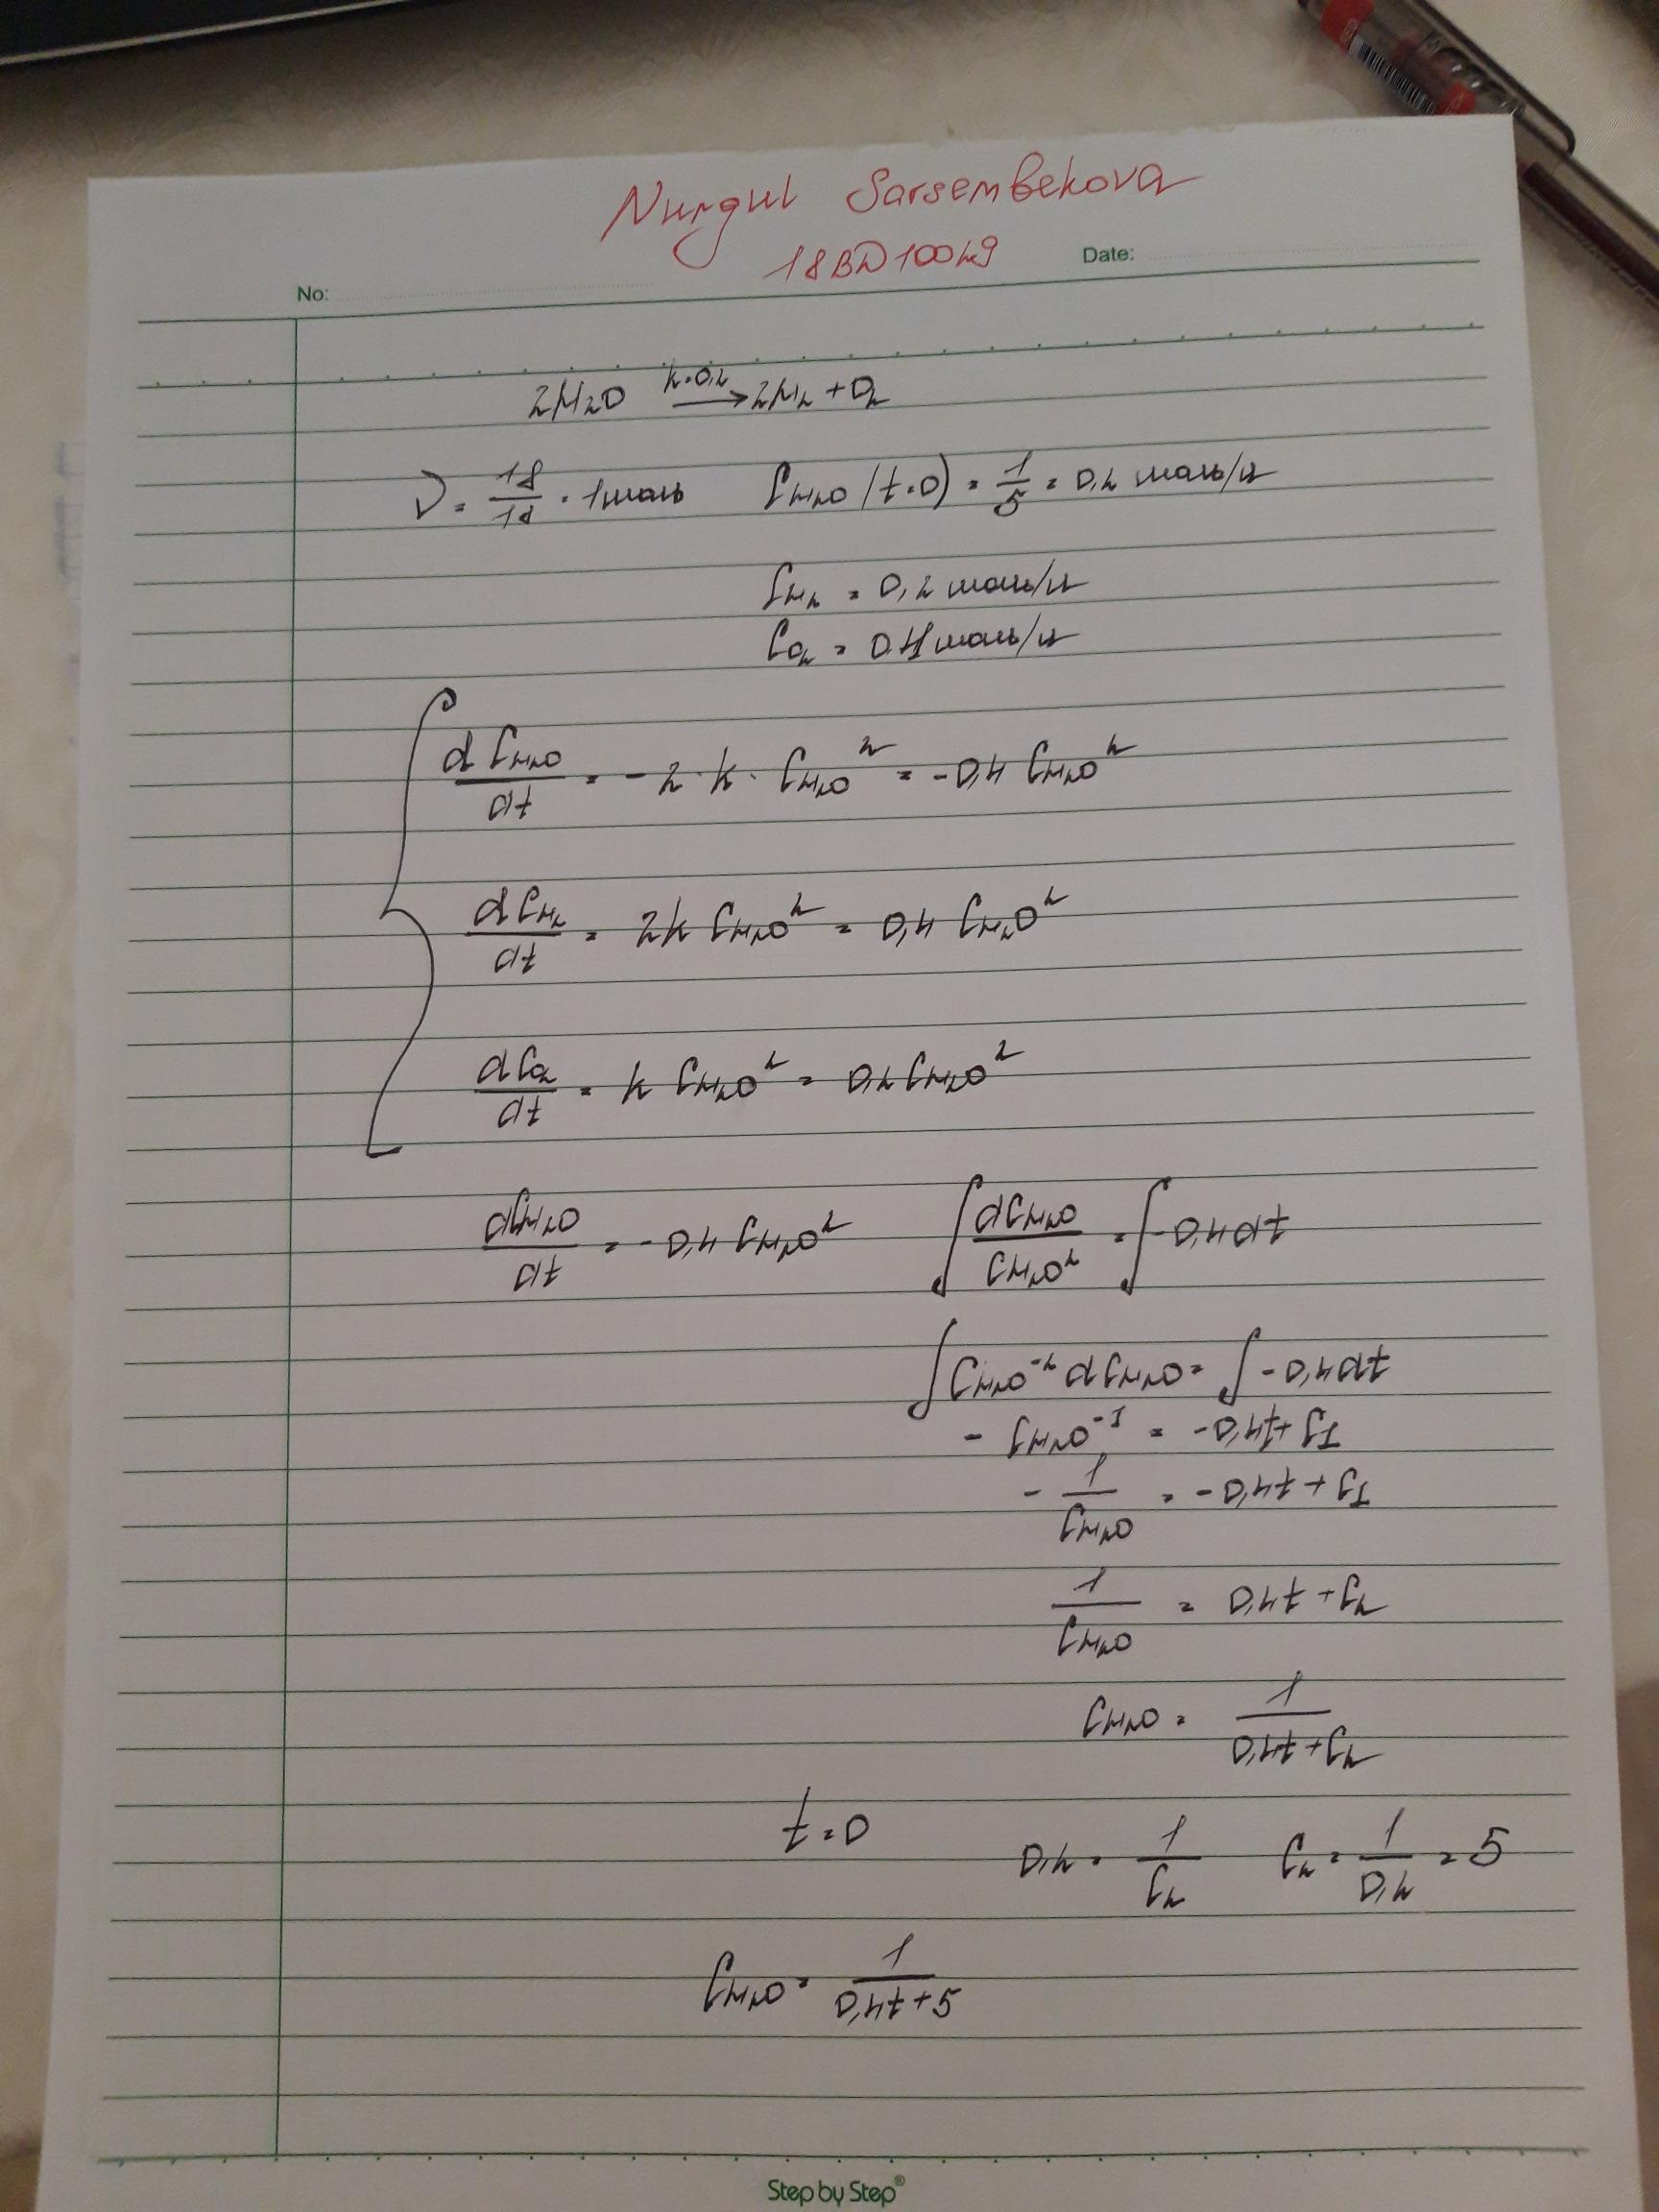 Nurgul Sarsembekova
18BD100429
No: Date:
2H₂O —k=0,2→ 2H₂ + O₂
ν = 18/18 = 1моль C_H₂O (t=0) = 1/5 = 0,2 моль/л
C_H₂ = 0,2 моль/л
C_O₂ = 0,1 моль/л
dC_H₂O/dt = -2·k·C_H₂O² = -0,4 C_H₂O²
dC_H₂/dt = 2k C_H₂O² = 0,4 C_H₂O²
dC_O₂/dt = k C_H₂O² = 0,2 C_H₂O²
dC_H₂O/dt = -0,4 C_H₂O² ∫ dC_H₂O/C_H₂O² = ∫ -0,4dt
∫ C_H₂O⁻² dC_H₂O = ∫ -0,4dt
- C_H₂O⁻¹ = -0,4t + C₁
- 1/C_H₂O = -0,4t + C₁
1/C_H₂O = 0,4t + C₂
C_H₂O = 1/(0,4t + C₂)
t=0 0,2 = 1/C₂ C₂ = 1/0,2 = 5
C_H₂O = 1/(0,4t+5)
Step by Step®